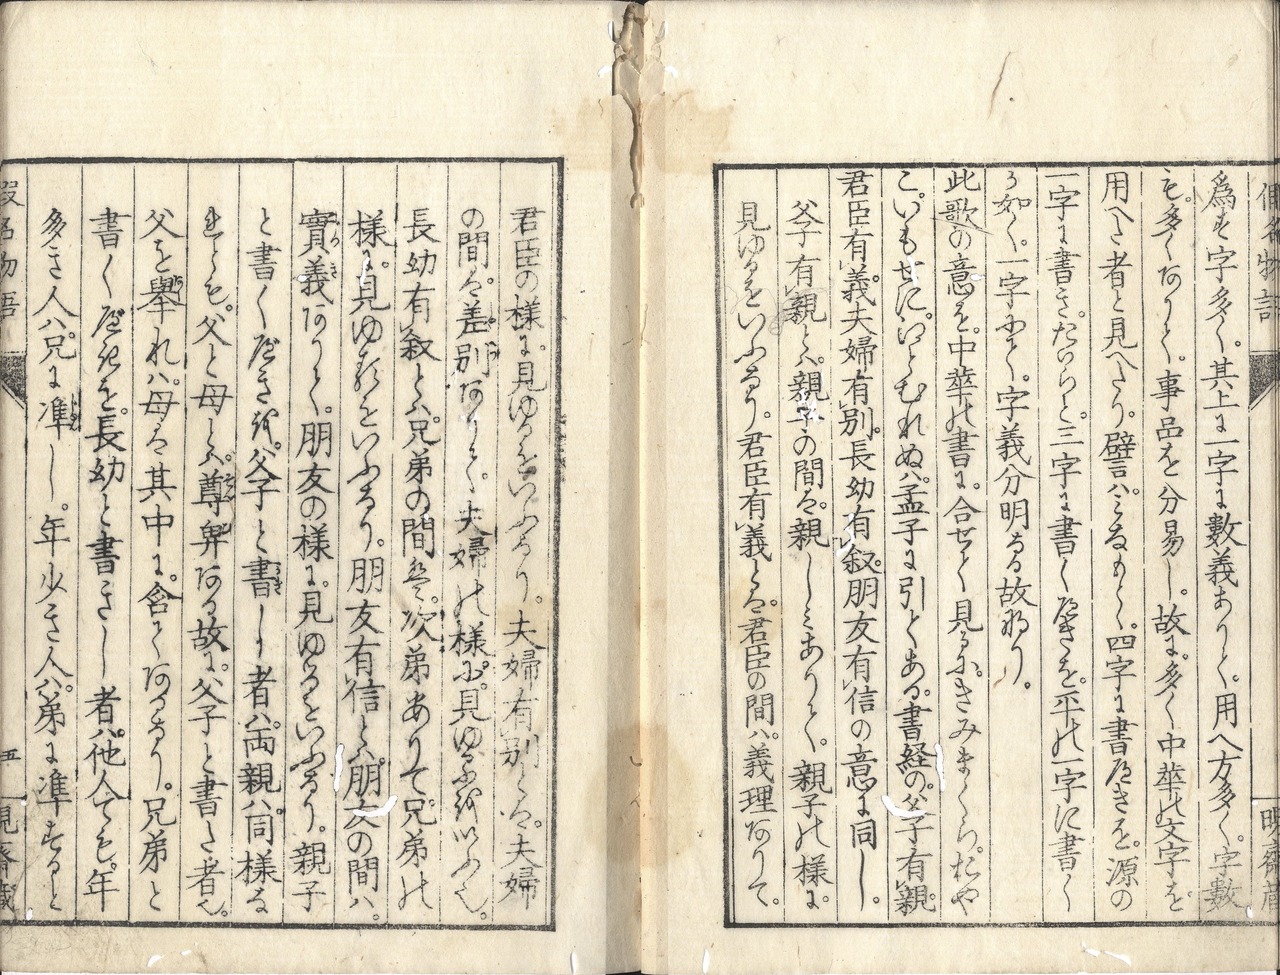 為す字多く。其上に一字に數義ありて。用へ方多く。字數
も。多くありて。事品を分易し。故に。多く中華の文字を
用へき者と見へたり。譬ハミなもと。四字に書べきを。源の
一字に書き。たいらと。三字に書くべきを。平の一字に書く
か如く。一字にて。字義分明なる故なり。
此歌の意を。中華の書に。合せて見るに。きみまくら。おや
こ。いもせに。ゑとむれぬハ。孟子に引てある。書経の。父子有親。
君臣有義。夫婦有別。長幼有叙。朋友有信の意に同し。
父子有親とハ。親子の間は。親しミありて。親子の様に。
見ゆるをいふなり。君臣有義とは。君臣の間ハ。義理ありて。
君臣の様に。見ゆるをいふなり。夫婦有別とは。夫婦
の間は。差別ありて。夫婦の様に。見ゆるを以いふ也。
長幼有叙とハ。兄弟の間は。次弟ありて兄弟の
様に。見ゆるをいふなり。朋友有信とハ。朋友の間ハ。
實義ありて。朋友の様に。見ゆるをいふなり。親子
と書くべきを。父子と書し者ハ。両親ハ。同様な
れとも。父と母とハ。尊卑ある故に。父子と書た者也。
父を舉れハ。母は其中に。含てあるなり。兄弟と
書くべきを。長幼と書きし者ハ。他人ても。年
多き人ハ。兄に準し。年少き人ハ。弟に準すると
假名物語
五